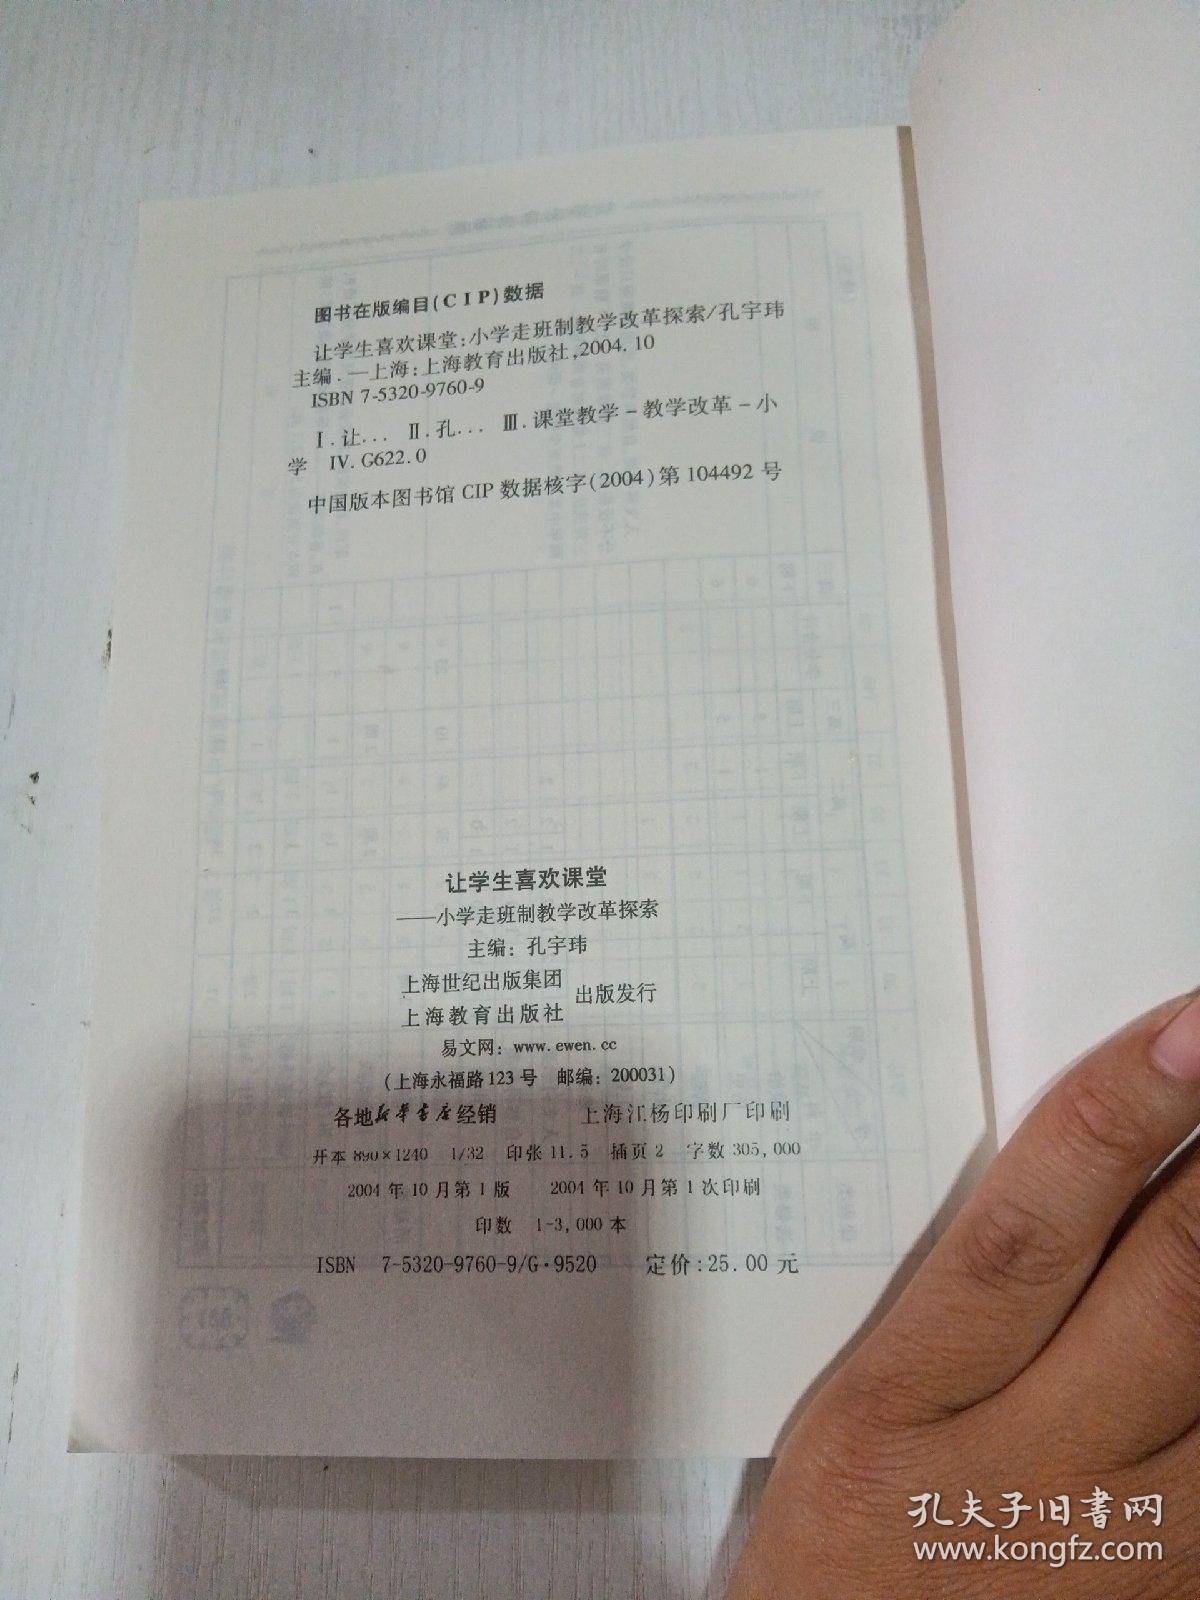 图书在版编目(CIP)数据
让学生喜欢课堂:小学走班制教学改革探索/孔宇玮
主编.—上海:上海教育出版社,2004.10
ISBN 7-5320-9760-9
Ⅰ.让... Ⅱ.孔... Ⅲ.课堂教学－教学改革－小
学 Ⅳ.G622.0
中国版本图书馆CIP数据核字(2004)第104492号
让学生喜欢课堂
——小学走班制教学改革探索
主编: 孔宇玮
上海世纪出版集团
上海教育出版社
出版发行
易文网: www.ewen.cc
(上海永福路123号 邮编: 200031)
各地新华书店经销 上海江杨印刷厂印刷
开本 890×1240 1/32 印张 11.5 插页 2 字数 305,000
2004年10月第1版 2004年10月第1次印刷
印数 1-3,000本
ISBN 7-5320-9760-9/G·9520 定价:25.00元
孔夫子旧书网
www.kongfz.com